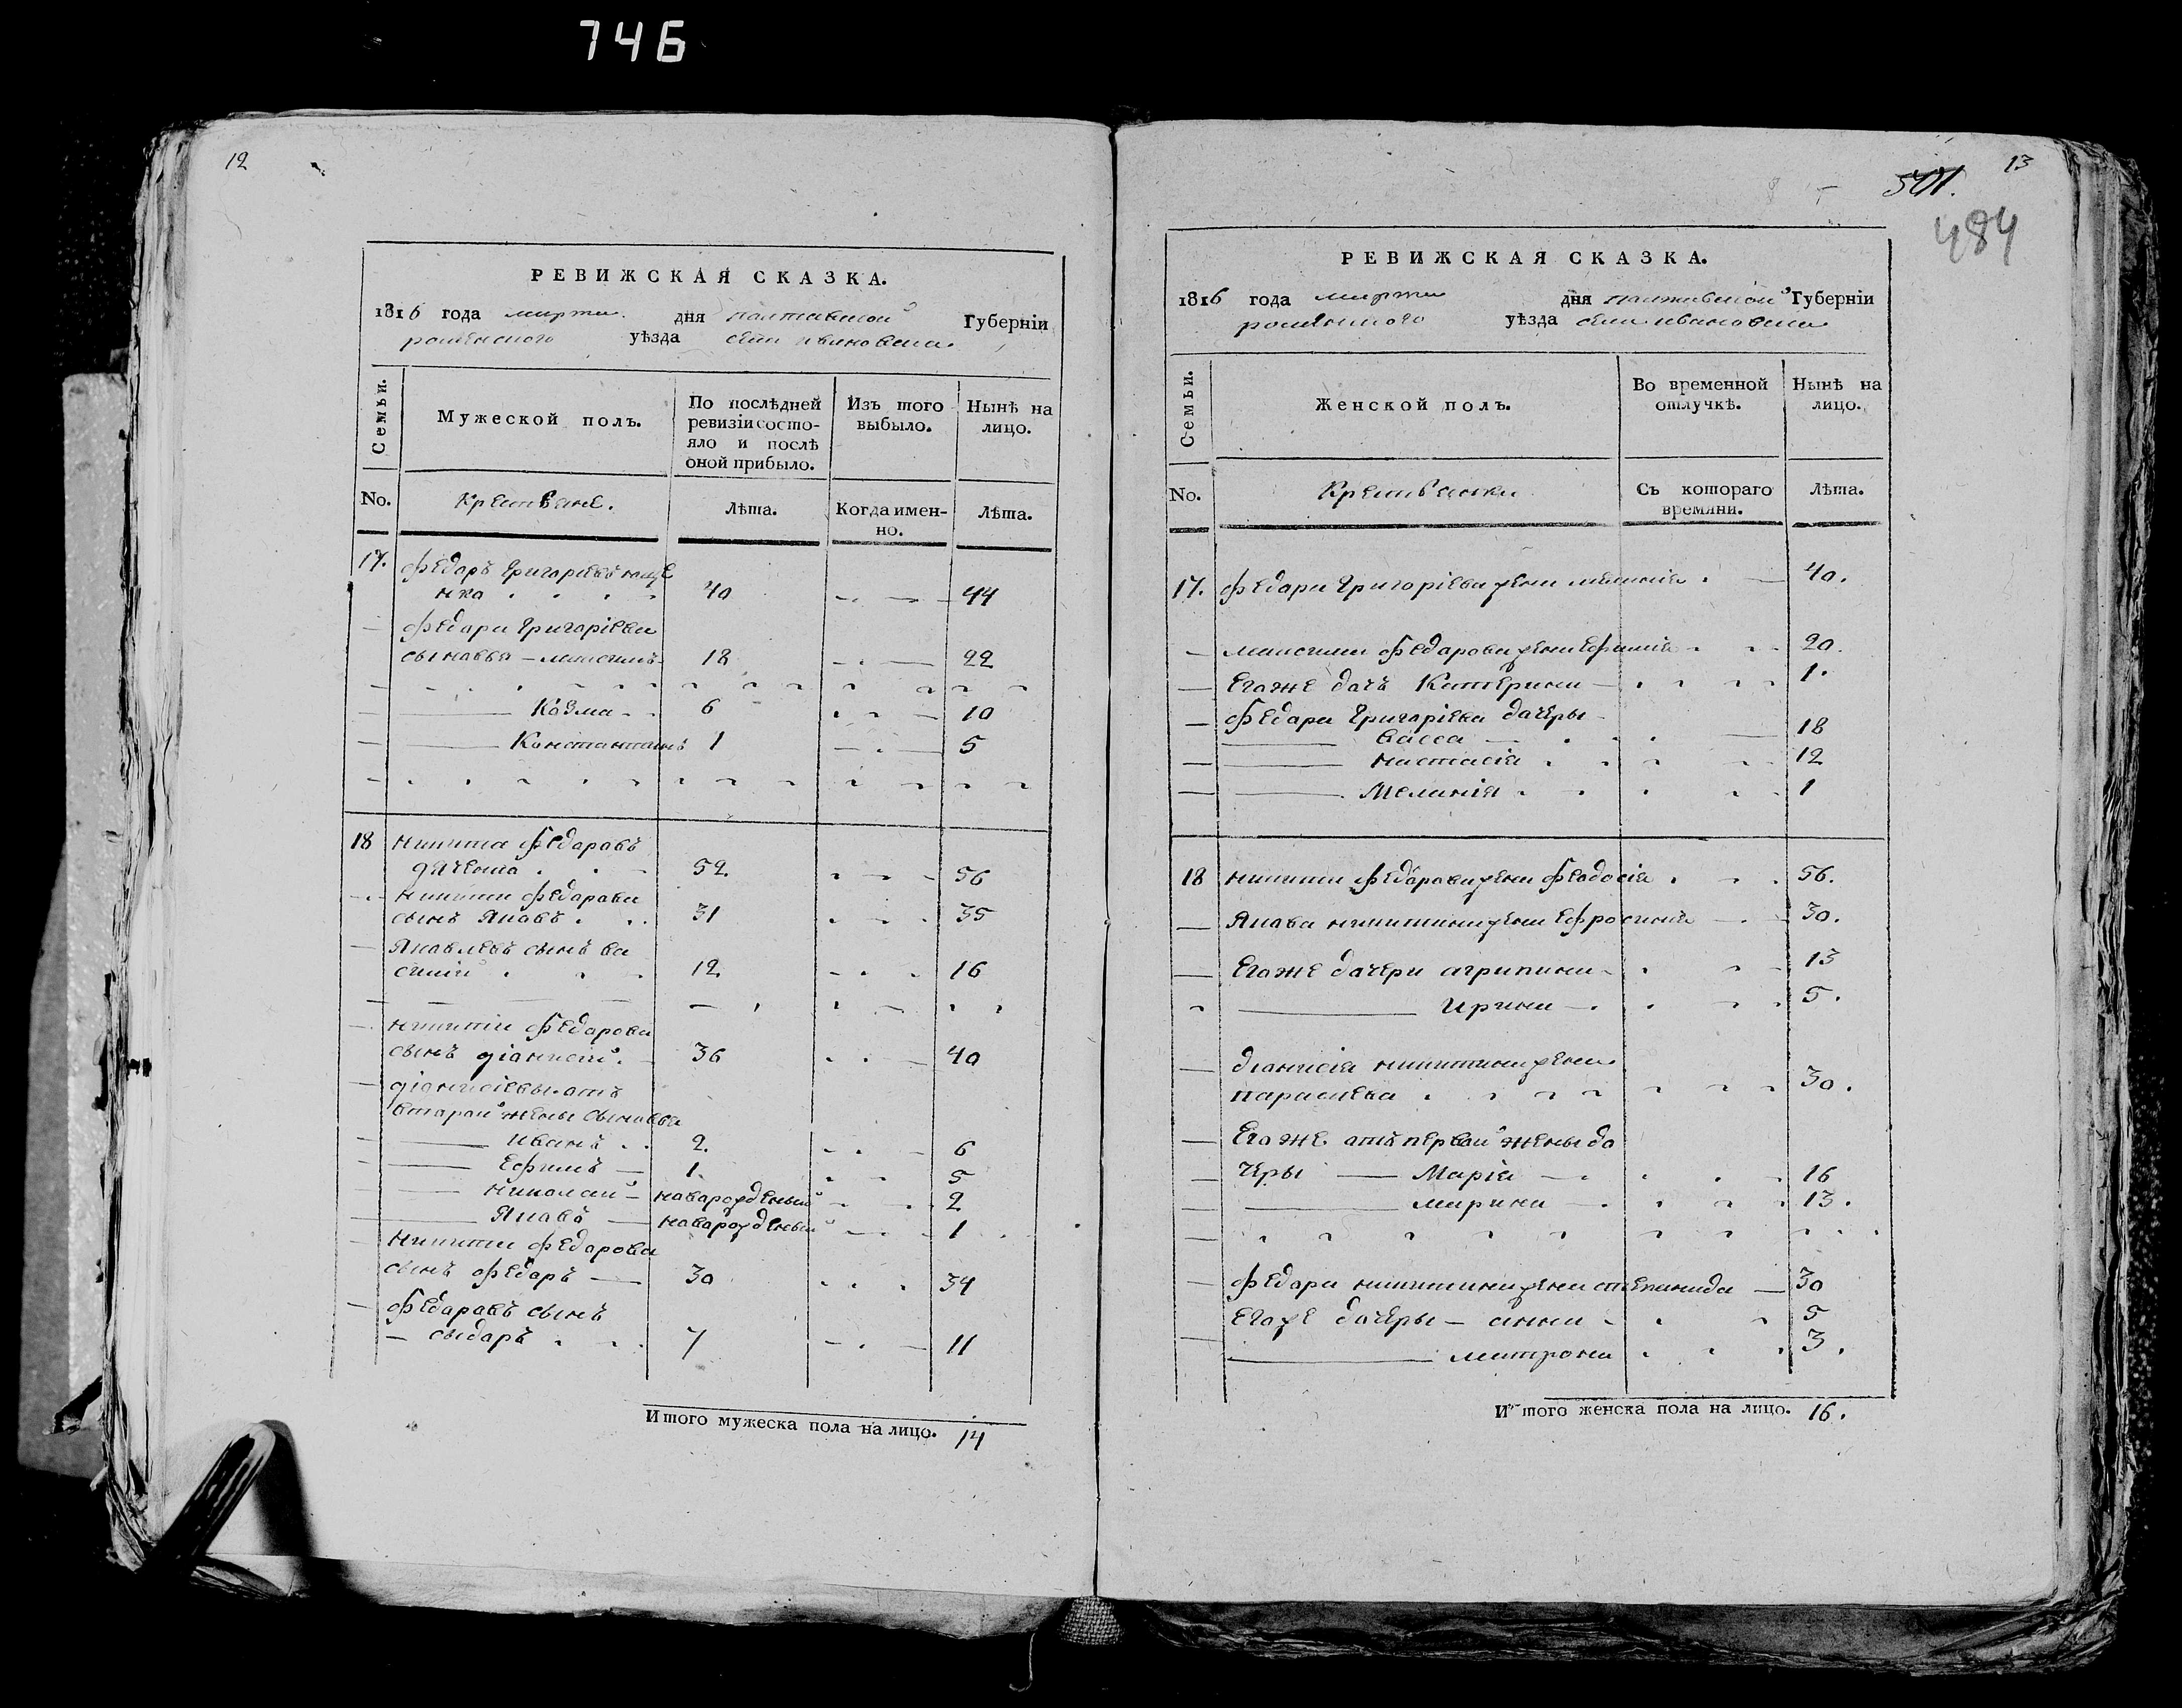 746
12
РЕВИЖСКАЯ СКАЗКА.
1816 года марта дня полтавской Губерніи
роменского уѣзда села ивановска.
Семьи.
Мужеской полъ.
По послѣдней ревизіи состояло и послѣ оной прибыло.
Изъ того выбыло.
Нынѣ на лицо.
No.
Крестьяне.
Лѣта.
Когда именно.
Лѣта.
17. федоръ Григоріевъ
нка 40 44
федора Григоріева
сыновья – максимъ 18 22
Козма 6 10
Константинъ 1 5
18 никита федоровъ
дяченка 52. 56
никити федорова
сынъ Яковъ 31 35
Яковлевъ сынъ ва
силій 12. 16
никити федорова
сынъ діонисій 36 40
діонисіевы отъ
второй жены сыновья
иванъ 2. 6
Ефимъ 1. 5
николай – новорожденый 2
Яковъ — новорожденый 1
никити федорова
сынъ федоръ — 30 34
федоровъ сынъ
– сыдоръ 7 11
Итого мужеска пола на лицо. 14
13
501.
484
РЕВИЖСКАЯ СКАЗКА.
1816 года марта дня полтавской Губерніи
роменского уѣзда села ивановска
Семьи.
Женской полъ.
Во временной отлучкѣ.
Нынѣ на лицо.
No.
Крестьянки
Съ котораго времяни.
Лѣта.
17. федора Григоріева жена 40.
максима федорова жена Ефимія 20.
Егоже дочь Катерина 1.
федора Григоріева дочеры
васса 18
настасія 12
Меланія 1
18 никити федорова жена феодосія 56.
Якова никитина жена Ефросинія 30.
Егоже дочери агрипина 13
Ирина 5.
діонисія никитина жена
параскева 30.
Егоже отъ первой жены до
черы — Марія 16
марина 13.
федора никитина жена степанида — 30
Егоже дочеры – анна 5
матрона 3.
Итого женска пола на лицо. 16.